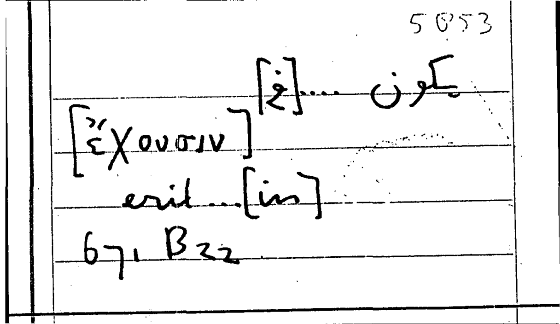 5053
يكون .... [في]
[ἔχουσιν]
erit ... [in]
671, B22